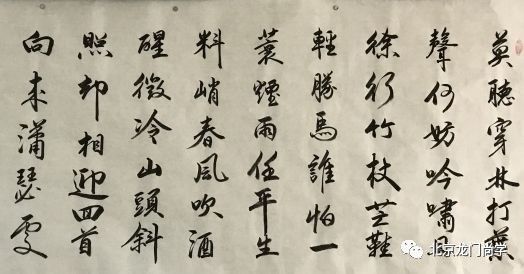 莫聽穿林打葉
聲何妨吟嘯且
徐行竹杖芒鞋
輕勝馬誰怕一
蓑煙雨任平生
料峭春風吹酒
醒微冷山頭斜
照却相迎回首
向來瀟瑟處
北京龙门尚学